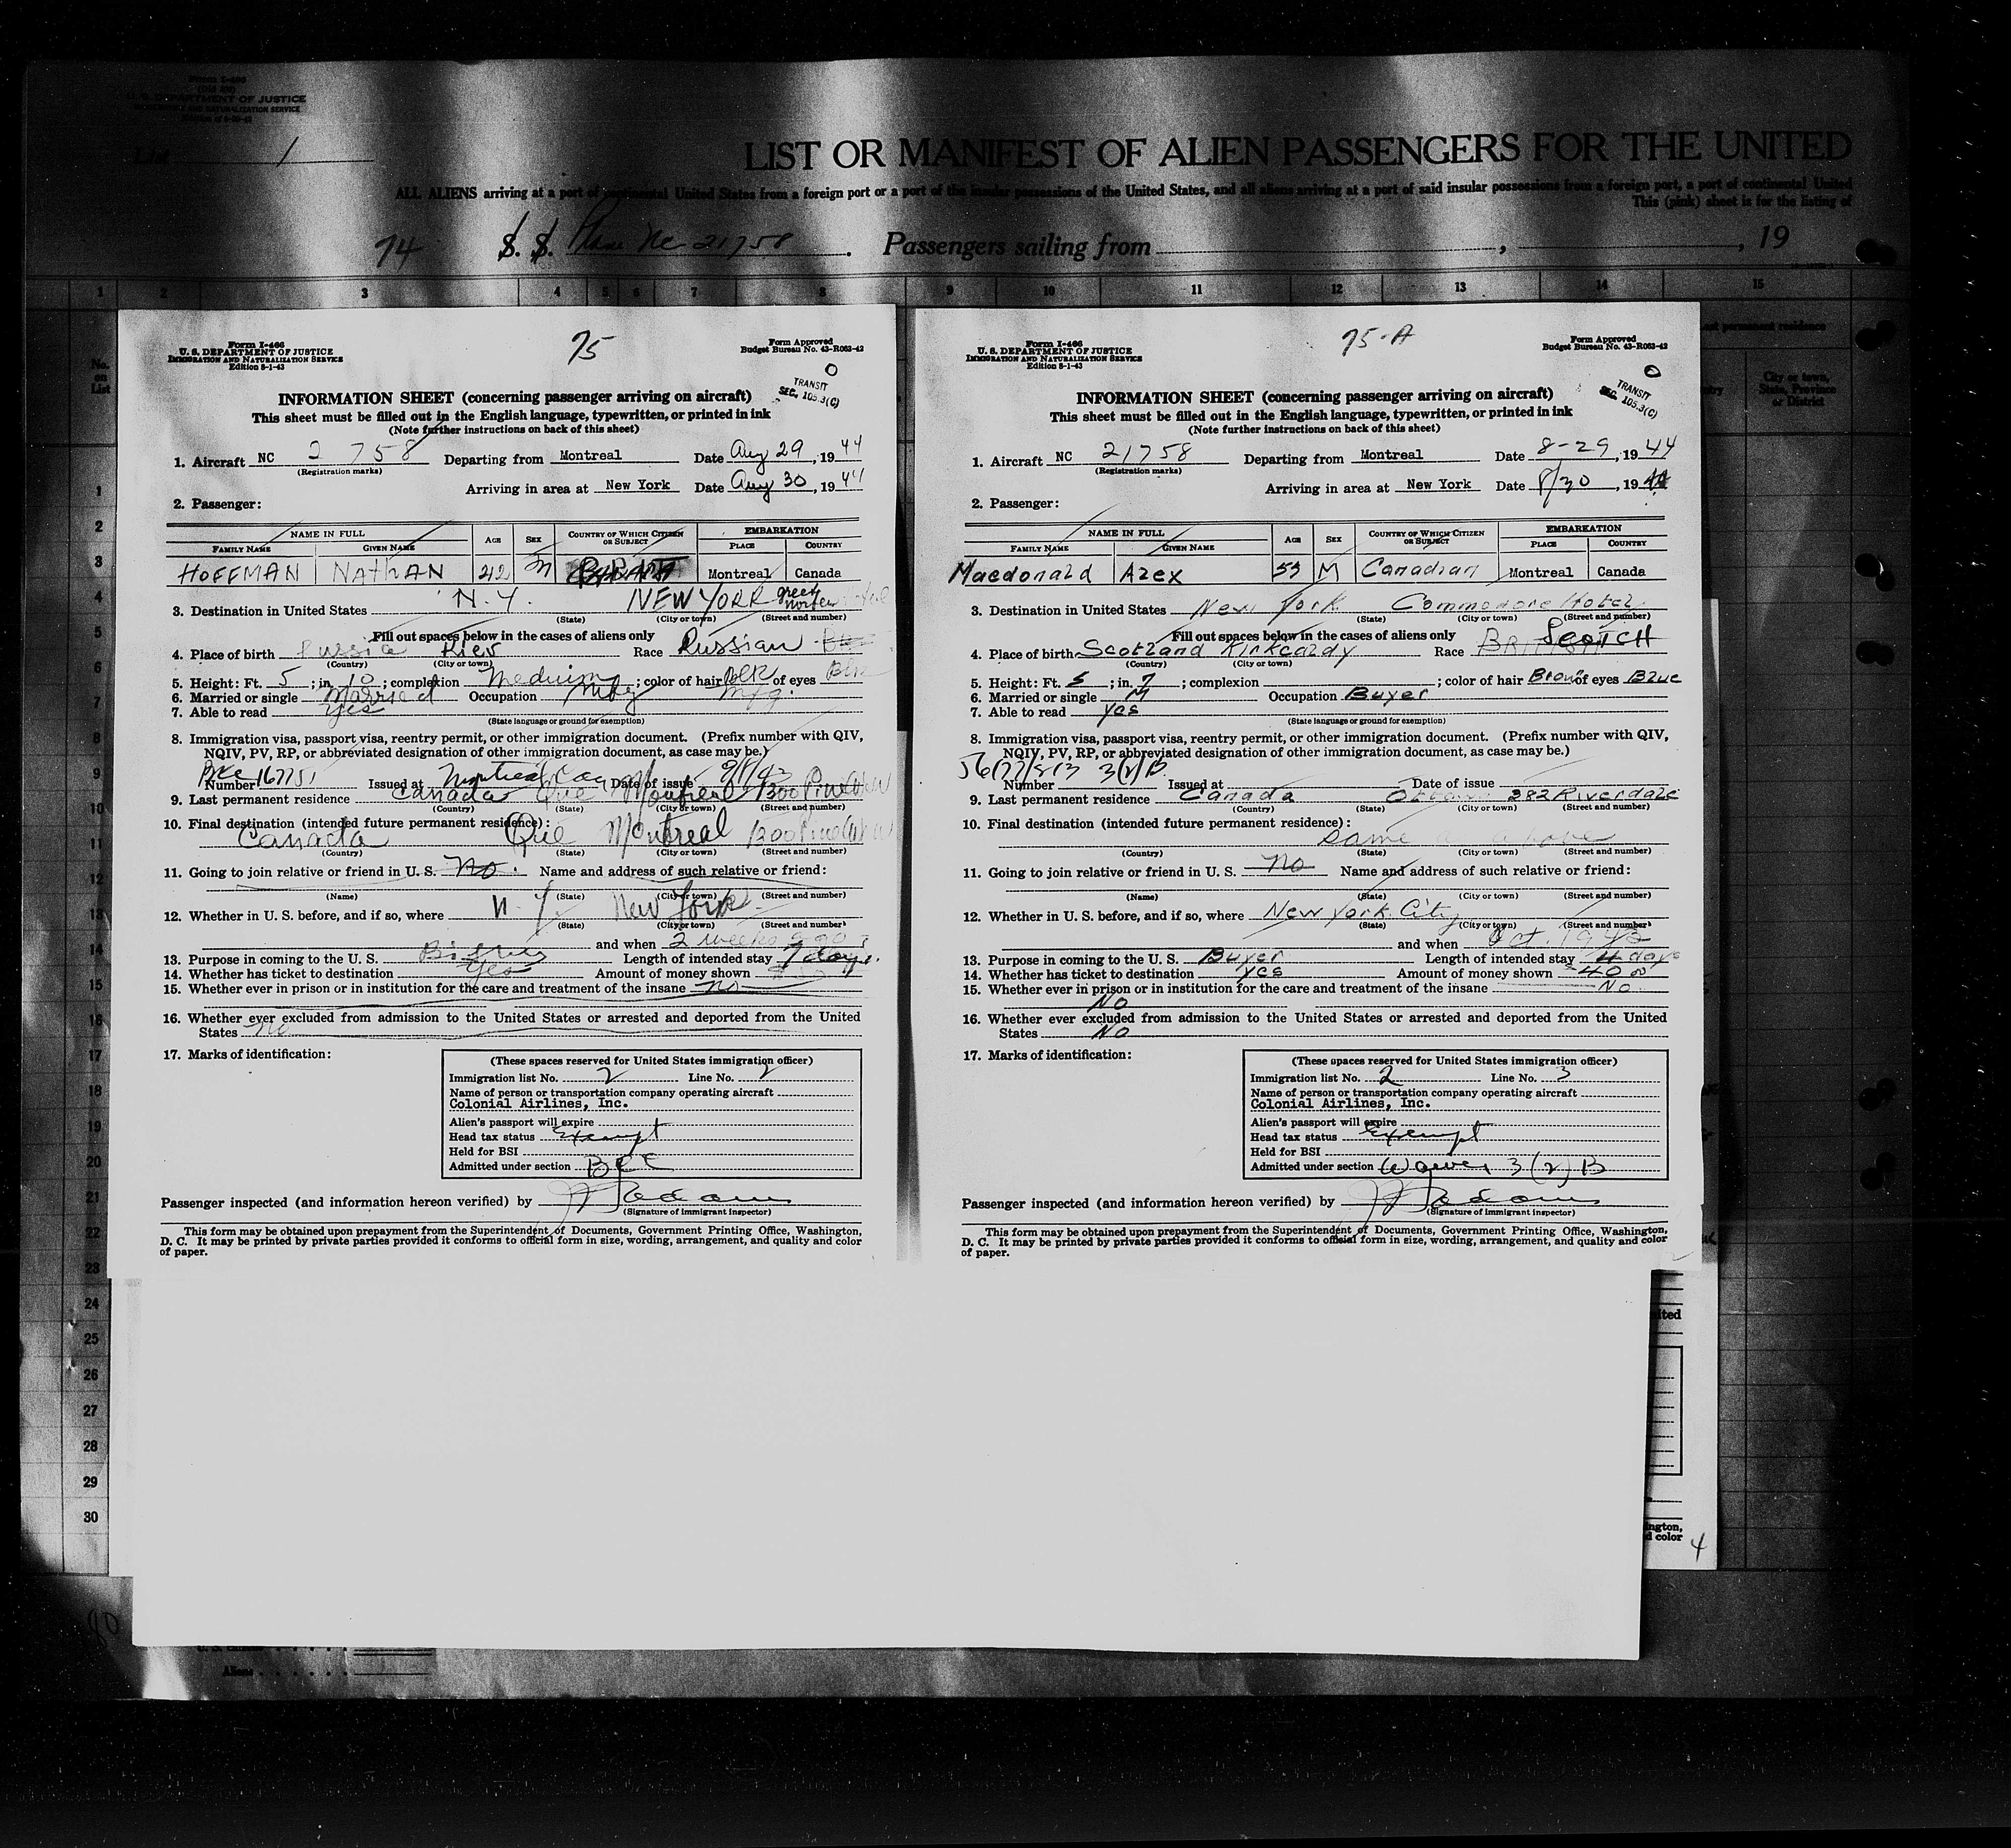 Form I-466
U. S. DEPARTMENT OF JUSTICE
IMMIGRATION AND NATURALIZATION SERVICE
List 1
LIST OR MANIFEST OF ALIEN PASSENGERS FOR THE UNITED
ALL ALIENS arriving at a port of continental United States from a foreign port or a port of the insular possessions of the United States, and all aliens arriving at a port of said insular possessions from a foreign port, a port of continental United
This (pink) sheet is for the listing of
74 S. S. Plane NC 21758. Passengers sailing from , , 19
1 2 3 4 5 6 7 8 9 10 11 12 13 14 15
No. on List
City or town, State, Province or District
1
2
3
4
5
6
7
8
9
10
11
12
13
14
15
16
17
18
19
20
21
22
23
24
25
26
27
28
29
30
Form I-466
U. S. DEPARTMENT OF JUSTICE
IMMIGRATION AND NATURALIZATION SERVICE
Edition 8-1-43
75
Form Approved
Budget Bureau No. 43-R063-42
TRANSIT
SEC. 105.3(C)
INFORMATION SHEET (concerning passenger arriving on aircraft)
This sheet must be filled out in the English language, typewritten, or printed in ink
(Note further instructions on back of this sheet)
1. Aircraft NC 2 758 Departing from Montreal Date Aug 29, 1944
(Registration marks)
Arriving in area at New York Date Aug 30, 1944
2. Passenger:
NAME IN FULL AGE SEX COUNTRY OF WHICH CITIZEN OR SUBJECT EMBARKATION
FAMILY NAME GIVEN NAME PLACE COUNTRY
HOFFMAN NATHAN 42 M Montreal Canada
3. Destination in United States N.Y. NEW YORK
(State) (City or town) (Street and number)
Fill out spaces below in the cases of aliens only
4. Place of birth Russia Kiev Race Russian
(Country) (City or town)
5. Height: Ft. 5; in. 10; complexion Medium; color of hair BLK of eyes
6. Married or single Married Occupation Mfg Mfg.
7. Able to read Yes
(State language or ground for exemption)
8. Immigration visa, passport visa, reentry permit, or other immigration document. (Prefix number with QIV,
NQIV, PV, RP, or abbreviated designation of other immigration document, as case may be.)
Number Issued at Montreal Date of issue
9. Last permanent residence Canada Que Montreal 1300 Pine
(Country) (State) (City or town) (Street and number)
10. Final destination (intended future permanent residence):
Canada Que Montreal 1300 Pine
(Country) (State) (City or town) (Street and number)
11. Going to join relative or friend in U. S. No. Name and address of such relative or friend:
(Name) (State) (City or town) (Street and number)
12. Whether in U. S. before, and if so, where N.Y. New York
(State) (City or town) (Street and number)
and when 2 weeks ago
13. Purpose in coming to the U. S. Length of intended stay 7 days.
14. Whether has ticket to destination Yes Amount of money shown
15. Whether ever in prison or in institution for the care and treatment of the insane No
16. Whether ever excluded from admission to the United States or arrested and deported from the United
States No
17. Marks of identification:
(These spaces reserved for United States immigration officer)
Immigration list No. 2 Line No. 2
Name of person or transportation company operating aircraft
Colonial Airlines, Inc.
Alien's passport will expire
Head tax status Exempt
Held for BSI
Admitted under section BCC
Passenger inspected (and information hereon verified) by
(Signature of immigrant inspector)
This form may be obtained upon prepayment from the Superintendent of Documents, Government Printing Office, Washington,
D. C. It may be printed by private parties provided it conforms to official form in size, wording, arrangement, and quality and color
of paper.
Form I-466
U. S. DEPARTMENT OF JUSTICE
IMMIGRATION AND NATURALIZATION SERVICE
Edition 8-1-43
75-A
Form Approved
Budget Bureau No. 43-R063-42
TRANSIT
SEC. 105.3(C)
INFORMATION SHEET (concerning passenger arriving on aircraft)
This sheet must be filled out in the English language, typewritten, or printed in ink
(Note further instructions on back of this sheet)
1. Aircraft NC 21758 Departing from Montreal Date 8-29, 1944
(Registration marks)
Arriving in area at New York Date 8/30, 1944
2. Passenger:
NAME IN FULL AGE SEX COUNTRY OF WHICH CITIZEN OR SUBJECT EMBARKATION
FAMILY NAME GIVEN NAME PLACE COUNTRY
Macdonald Alex 53 M Canadian Montreal Canada
3. Destination in United States New York Commodore Hotel
(State) (City or town) (Street and number)
Fill out spaces below in the cases of aliens only
4. Place of birth Scotland Kirkcaldy Race BRITISH SCOTCH
(Country) (City or town)
5. Height: Ft. 5; in. 7; complexion ; color of hair Brown of eyes Blue
6. Married or single M Occupation Buyer
7. Able to read yes
(State language or ground for exemption)
8. Immigration visa, passport visa, reentry permit, or other immigration document. (Prefix number with QIV,
NQIV, PV, RP, or abbreviated designation of other immigration document, as case may be.)
3(2)B
Number Issued at Date of issue
9. Last permanent residence Canada Ottawa 282 Riverdale
(Country) (State) (City or town) (Street and number)
10. Final destination (intended future permanent residence):
Same as above
(Country) (State) (City or town) (Street and number)
11. Going to join relative or friend in U. S. No Name and address of such relative or friend:
(Name) (State) (City or town) (Street and number)
12. Whether in U. S. before, and if so, where New York City
(State) (City or town) (Street and number)
and when Oct. 1943
13. Purpose in coming to the U. S. Buyer Length of intended stay 4 days
14. Whether has ticket to destination yes Amount of money shown $40 00
15. Whether ever in prison or in institution for the care and treatment of the insane No
No
16. Whether ever excluded from admission to the United States or arrested and deported from the United
States No
17. Marks of identification:
(These spaces reserved for United States immigration officer)
Immigration list No. 2 Line No. 3
Name of person or transportation company operating aircraft
Colonial Airlines, Inc.
Alien's passport will expire
Head tax status Exempt
Held for BSI
Admitted under section Waiver 3(2)B
Passenger inspected (and information hereon verified) by
(Signature of immigrant inspector)
This form may be obtained upon prepayment from the Superintendent of Documents, Government Printing Office, Washington,
D. C. It may be printed by private parties provided it conforms to official form in size, wording, arrangement, and quality and color
of paper.
4
Aliens